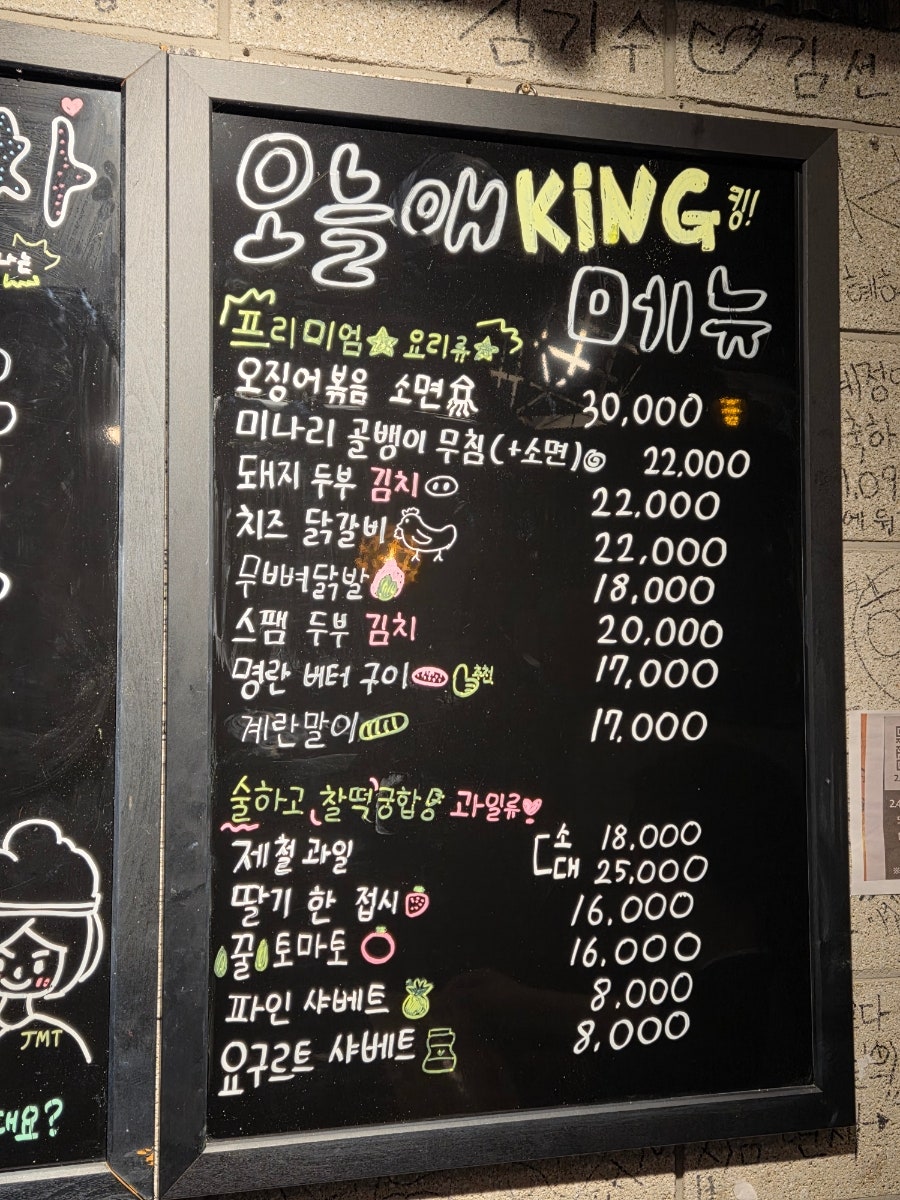 김기수 김선
차
오늘애 KiNG 킹!
메뉴
프리미엄 요리류
오징어볶음 소면 30,000
미나리 골뱅이 무침(+소면) 22,000
돼지 두부 김치 22,000
치즈 닭갈비 22,000
무뼈닭발 18,000
스팸 두부 김치 20,000
명란 버터 구이 추천 17,000
계란말이 17,000
술하고 찰떡궁합 과일류
제철과일 소 18,000
대 25,000
딸기 한 접시 16,000
꿀토마토 16,000
파인 샤베트 8,000
요구르트 샤베트 8,000
JMT
대요?